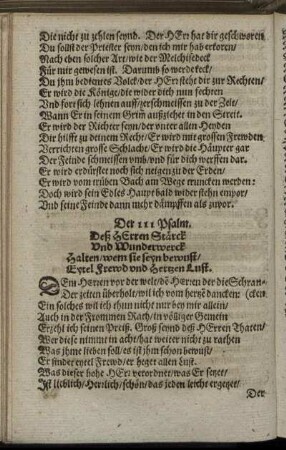 Die nicht zu zehlen seynd. Der HErr hat dir geschworen
Du sollst der Priester seyn/den ich mir hab erkoren/
Nach eben solcher Art/wie der Melchisedeck
Für mir gewesen ist. Darumb so werde keck/
Du jhm bedientes Volck/der HErr steht dir zur Rechten/
Er wird die Könige/die wider dich nun fechten
Und sich lehnen auff/zerschmeissen zu der Zeit/
Wann Er in seinem Grim außziehet in den Streit.
Er wird der Richter seyn/der vnter allen Henden
Dir hilfft zu deinem Recht/Er wird mit grossen Frewden
Verrichten grosse Schlacht/Er wird die Häupter gar
Der Feinde schmeissen vmb/vnd für dich werffen dar.
Er wird erdürstet noch sich neigen zu der Erden/
Er wird vom trüben Bach am Wege truncken werden:
Doch wird sein Edles Haupt bald wider stehn empor/
Vnd seine Feinde dann mehr dämpffen als zuvor.
Der 111 Psalm.
Deß HErren Stärck
Vnd Wunderwerck
Halten/wem sie seyn bewust/
Eytel Frewd vnd Hertzen Lust.
DEm HErren vor der welt/dē HErren der die Schran-
Der zeiten überholt/wil ich vom hertzē dancken (cken
Ein solches wil ich thun nicht nur bey mir allein/
Auch in der Frommen Rath/in völliger Gemein
Erzehl ich seinen Preiß. Groß seynd deß HErren Thaten/
Wer diese nimmt in acht/hat weiter nicht zu rathen
Was jhme lieben soll/es ist jhm schon bewust/
Er findet eytel Frewd/er heget allen Lust.
Was dieser hohe HErr verordnet/was Er setzet/
Ist lieblich/Herrlich/schön/das jeden leicht ergetzet/
Der